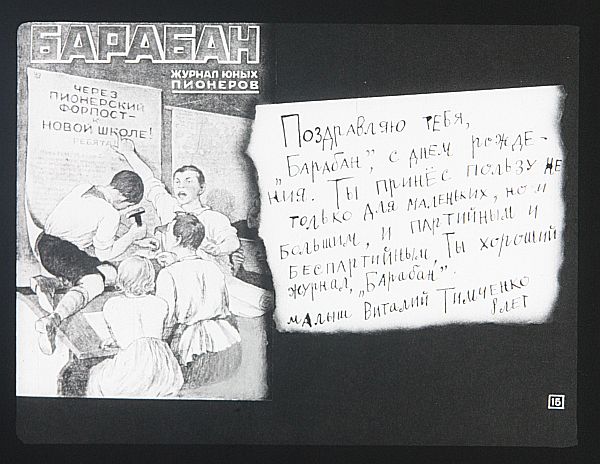 БАРАБАН
ЖУРНАЛ ЮНЫХ
ПИОНЕРОВ
ЧЕРЕЗ
ПИОНЕРСКИЙ
ФОРПОСТ-
К
НОВОЙ ШКОЛЕ!
РЕБЯТА!
Поздравляю тебя,
„Барабан”, с днем рожде-
ния. Ты принёс пользу не
только для маленьких, но и
большим, и партийным и
беспартийным, Ты хороший
журнал, „Барабан”.
малыш Виталий Тимченко
8 лет
15